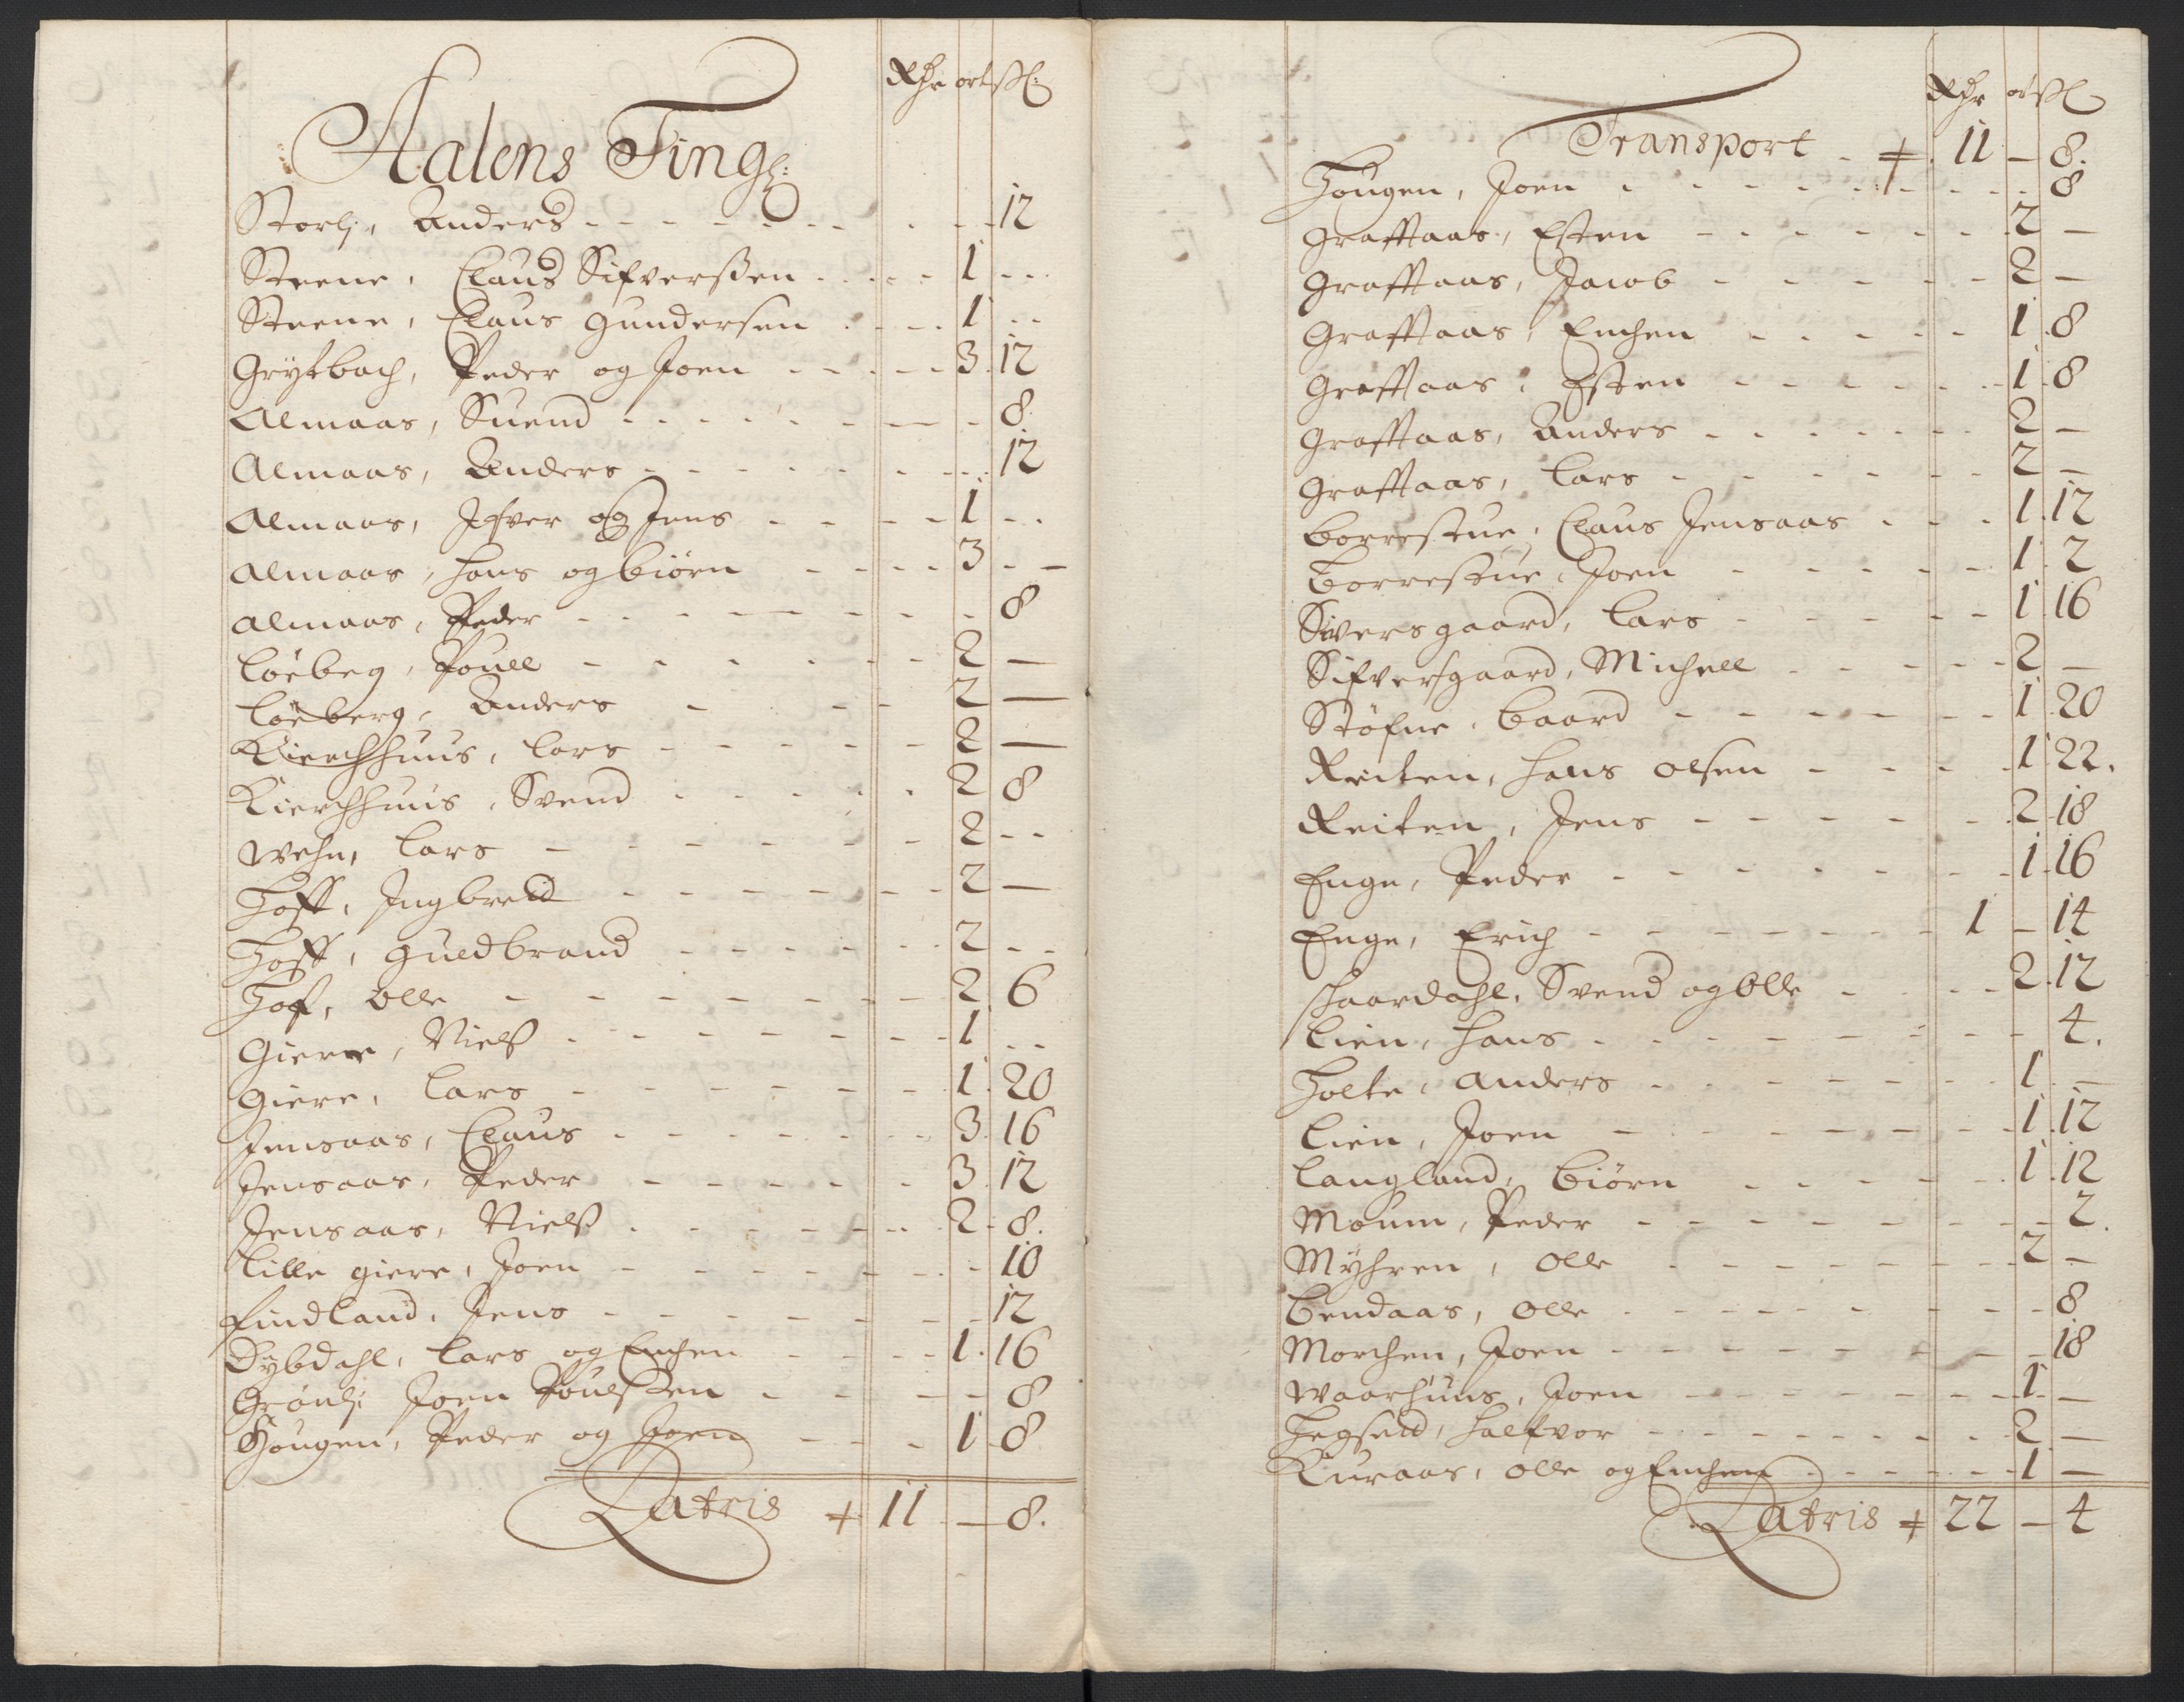 Rdr ort sk:
Aalens Tingl:
Storlj, Anders - - - - - - - - 12
Steene, Claus Sifverßen - - - 1 - -
Steene, Claus Gundersen - - - 1 - -
Grytbach, Peder og Joen - - - 3 12
Almaas, Suend - - - - - - - 8
Almaas, Anders - - - - - - - 12
Almaas, Ifver og Jens - - - 1 - -
Almaas, Hans og Biörn - - - 3 - -
Almaas, Peder - - - - - - - 8
Löebeg, Pouell - - - - - - 2 —
Löeberg, Anders - - - 2 —
Kierchhuus, Lars - - - - - 2 —
Kierchhuus, Svend - - - - - 2 8
Wehn, Lars - - - - - - 2 - -
Hoff, Ingbreid - - - - - - 2 —
Hoff, Guedbrand - - - - - - 2 - -
Hof, Olle - - - - - - - 2 6
Gierre, Nielß - - - - - - - 1 - -
Giere, Lars - - - - - - 1 20
Jensaas, Claus - - - - - - 3 16
Jensaas, Peder - - - - - 3 12
Jensaas, Nielß - - - - - - 2 8.
Lille giere, Joen - - - - - - - 10
Findland, Jens - - - - - - - 12
Dybdahl, Lars og Enchen - - - - 1 16
Grönlj Joen Poulsen - - - - 8
Hougen, Peder og Joen - - - 1 8
Latris ⸗ 11 — 8.
Rdr ort sk
Transport - ⸗ 11 — 8.
Hougen, Joen - - - - - - - - 8
Graftaas, Esten - - - - - - 2 —
Graftaas, Jacob - - - - - 2 —
Graftaas, Enchen - - - - - 1 8
Graftaas, Esten - - - - - - 1 8
Graftaas, Anders - - - - - - 2 —
Graftaas, Lars - - - - - - 2 —
Borrestue, Claus Jensaas - - - 1 12
Borrestue, Joen - - - - - 1 2
Siversgaard, Lars - - - - - 1 16
Sifversgaard, Michell - - - - - 2 —
Stöfne, Baard - - - - - - 1 20
Reiten, Hans Olsen - - - - 1 22.
Reiten, Jens - - - - - - 2 18
Enge, Peder - - - - - - - 1 16
Enge, Erich - - - - - - - 1 — 14
Skaardahl, Svend og Olle - - - - 2 12
Lien, Hans - - - - - - - - 4.
Holte, Anders - - - - - - - 1 —
Lien, Joen - - - - - - - 1 12
Langland, Biörn - - - - - 1 12
Moum, Peder - - - - - - - - 2.
Myhren, Olle - - - - - - - 2 —
Bendaas, Olle - - - - - - - - 8
Morchen, Joen - - - - - - - - 18
Waarhuus, Joen - - - - - - - 1 —
Hegseid, Halfvor - - - - - - - 2 —
Kuraas, Olle og Enchen - - - - - 1 —
Latris ⸗ 22 — 4